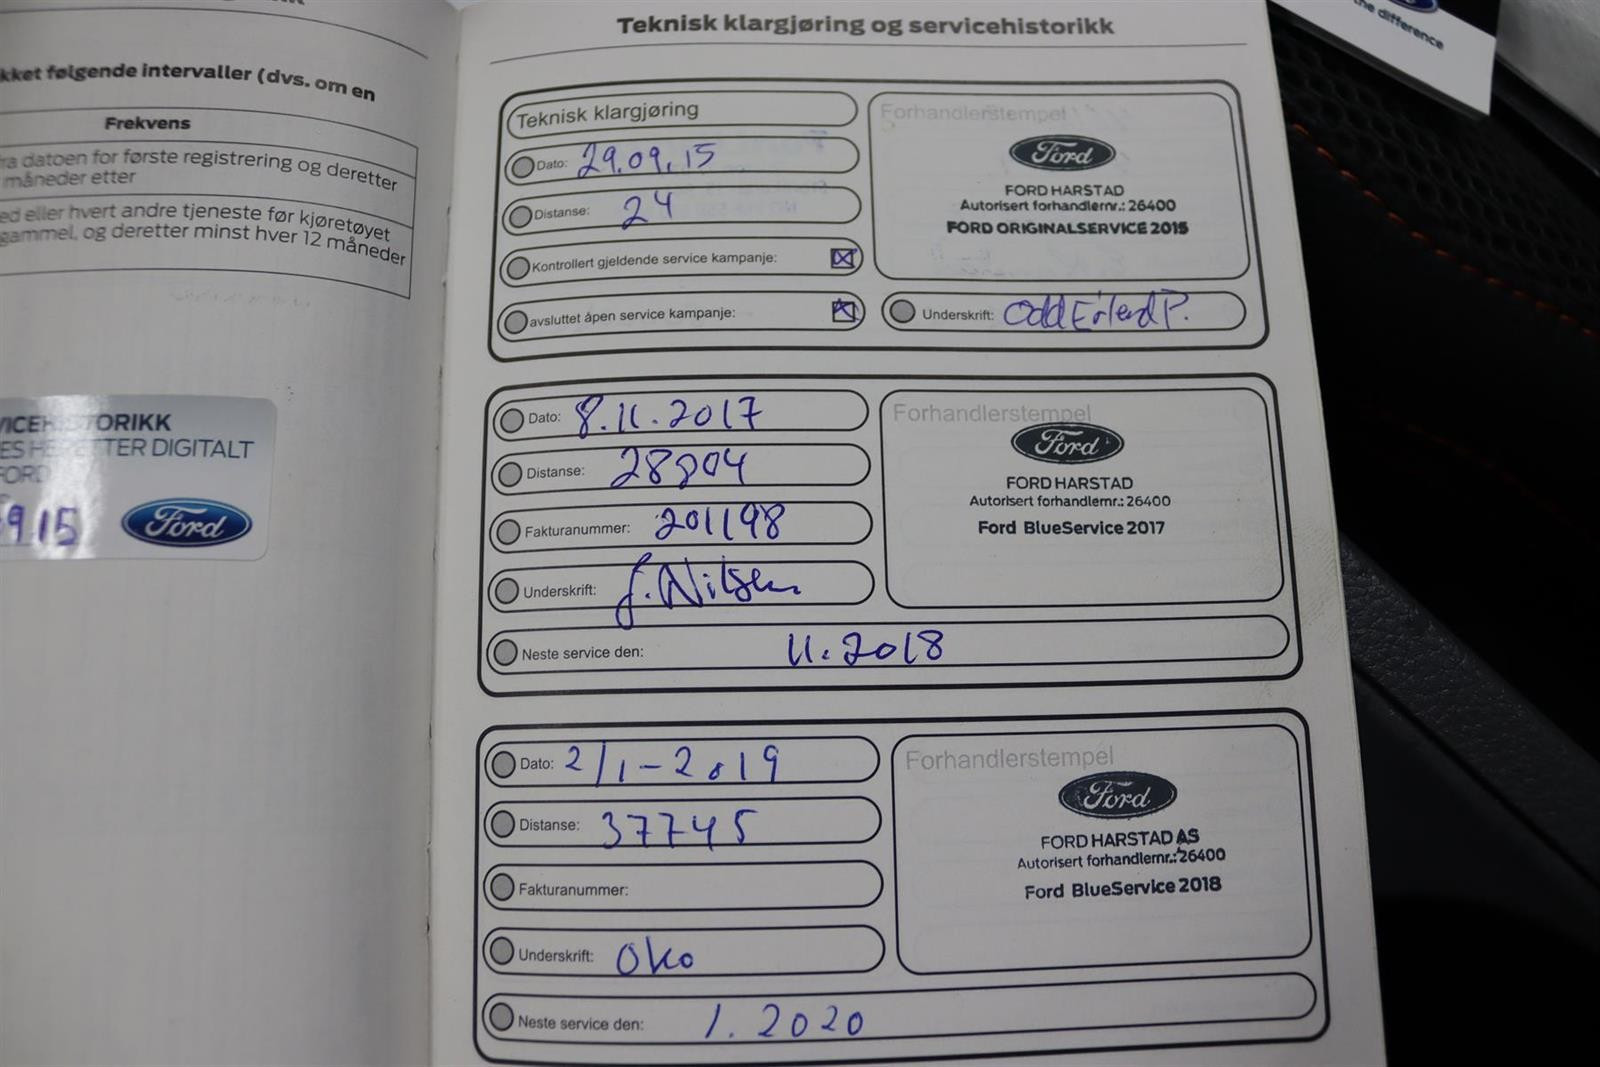 kket følgende intervaller (dvs. om en
Frekvens
ra datoen for første registrering og deretter
måneder etter
ed eller hvert andre tjeneste før kjøretøyet
gammel, og deretter minst hver 12 måneder
VICEHISTORIKK
ES HERETTER DIGITALT
FORD
9.15
Ford
Teknisk klargjøring og servicehistorikk
Teknisk klargjøring
Dato: 29.09.15
Distanse: 24
Kontrollert gjeldende service kampanje:
avsluttet åpen service kampanje:
Forhandlerstempel
Ford
FORD HARSTAD
Autorisert forhandlernr.: 26400
FORD ORIGINALSERVICE 2015
Underskrift: Odd Erlend P.
Dato: 8.11.2017
Distanse: 28804
Fakturanummer: 201198
Underskrift: J. Nilsen
Neste service den: 11.2018
Forhandlerstempel
Ford
FORD HARSTAD
Autorisert forhandlernr.: 26400
Ford BlueService 2017
Dato: 2/1-2019
Distanse: 37745
Fakturanummer:
Underskrift: OKo
Neste service den: 1.2020
Forhandlerstempel
Ford
FORD HARSTAD AS
Autorisert forhandlernr.: 26400
Ford BlueService 2018
he difference